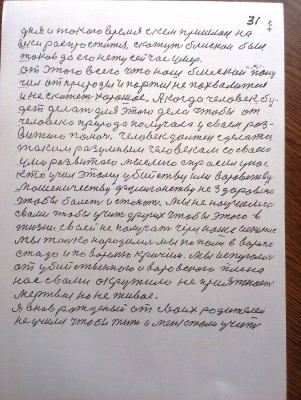 31
дня и такого время с кем пришлои на
веки распроститя, скажут близкои был
таков до его нету сейчас умер.
от этого всего что наш близкои полу
чил от природы и партии не похвалится
и не скажет хорошое. А когда человек бу-
дет делать для этого дела чтобы от
человека природа получала в своем роз-
витию помоч. человек должен сделать
таким разумным человекам со своего
ума развитого. мысленно спросим у нас
кто учил этому убийству или воровству
мошенничеству хулиганству не здаровию
чтобы болеть и стонать. Мы не научились
свами чтобы учить других чтобы этого в
жизни своей не получать чем наше
мы только народились мы попали в
стадо и по вороньи кричим. Мы испугались
от убийственного и воровского плена
нас свами окружило не приятност
мертвое но не живое.
Я внов рожденый от своих родителей
не учили чтобы мать меня стала учить